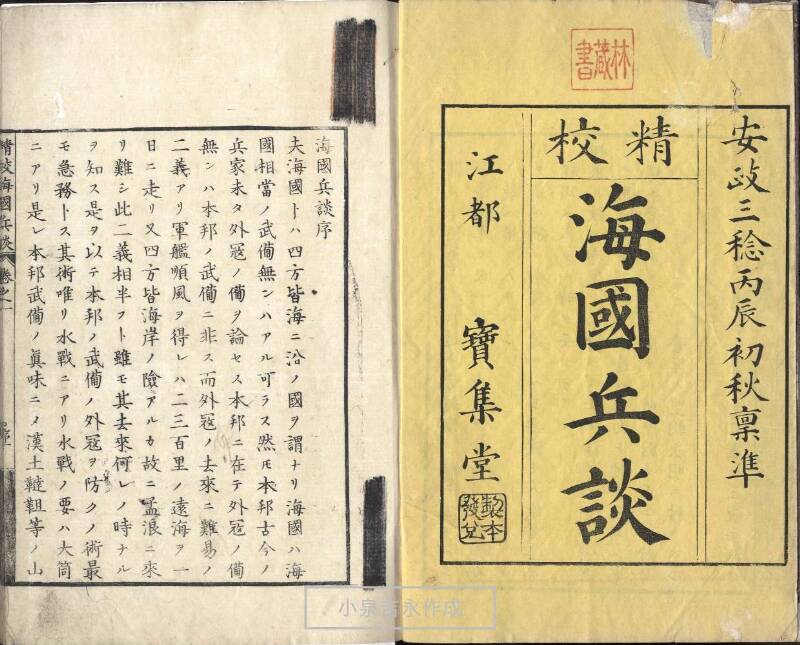 林藏書
安政三稔丙辰初秋稟準
精校
海國兵談
江都　寶集堂
製本發兌
海國兵談序
夫海國トハ四方皆海ニ沿ノ國ヲ謂ナリ海國ハ海
國相當ノ武備無ンハアル可ラス然𪜈本邦古今ノ
兵家未タ外冦ノ備ヲ論セス本邦ニ在テ外冦ノ備
無ンハ本邦ノ武備ニ非ス而外冦ノ去來ニ難易ノ
二義アリ軍艦順風ヲ得レハ二三百里ノ遠海ヲ一
日ニ走リ又四方皆海岸ノ險アルカ故ニ孟浪ニ來
リ難シ此二義相半フト雖モ其去來何レノ時ナル
ヲ知ス是ヲ以テ本邦ノ武備ノ外冦ヲ防クノ術最
モ急務トス其術唯リ水戰ニアリ水戰ノ要ハ大筒
ニアリ是レ本邦武備ノ眞味ニ〆漢土韃靼等ノ山
精校海國兵談　卷之一
小泉吉永作成